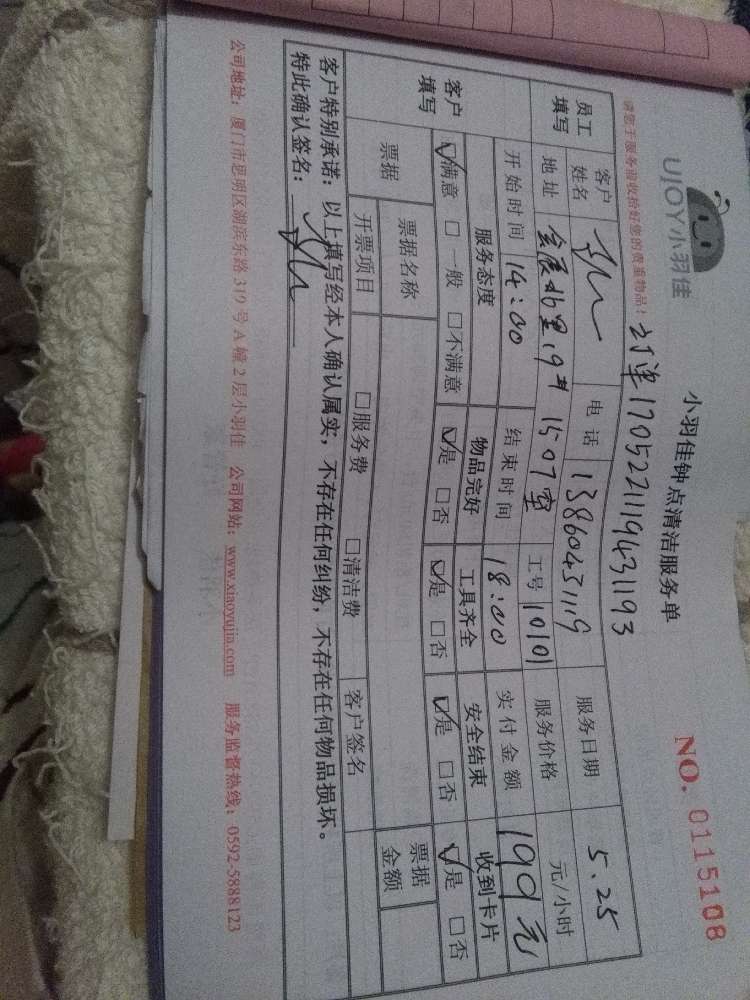 UJOY小羽佳
小羽佳钟点清洁服务单
NO. 0115108
请您于服务前收拾好您的贵重物品!
订单1705221119431193
员工填写
客户姓名
电话 13860431119
服务日期 5.25
地址 会展北里19# 1507室
工号 10101
服务价格 元/小时
开始时间 14:00
结束时间 18:00
实付金额 190元
客户填写
服务态度 物品完好 工具齐全 安全结束 收到卡片
☑满意 □一般 □不满意 ☑是 □否 ☑是 □否 ☑是 □否 ☑是 □否
票据
票据名称
票据金额
开票项目 □服务费 □清洁费 客户签名
客户特别承诺:以上填写经本人确认属实,不存在任何纠纷,不存在任何物品损坏。
特此确认签名:
公司地址:厦门市思明区湖滨东路319号A幢2层小羽佳 公司网站:www.xiaoyujia.com 服务监督热线:0592-5888123